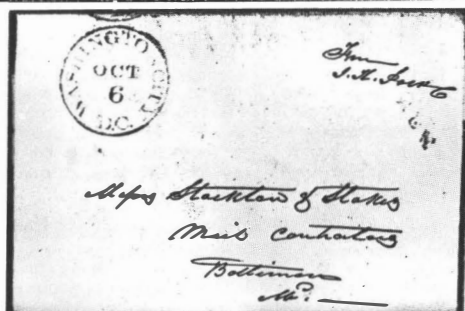 WASHINGTON CITY
OCT
6
D.C.
Free
Messrs Stockton & Stokes
Mail Contractors
Baltimore
Md.